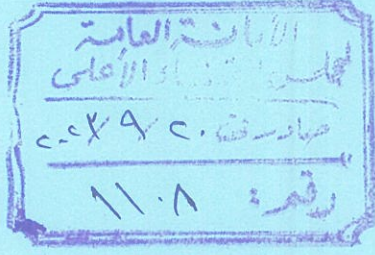 الأمانة العامة
لمجلس القضاء الأعلى
صادر في ٢٠/٩/٢٠٢٣
رقم: ١١٠٨